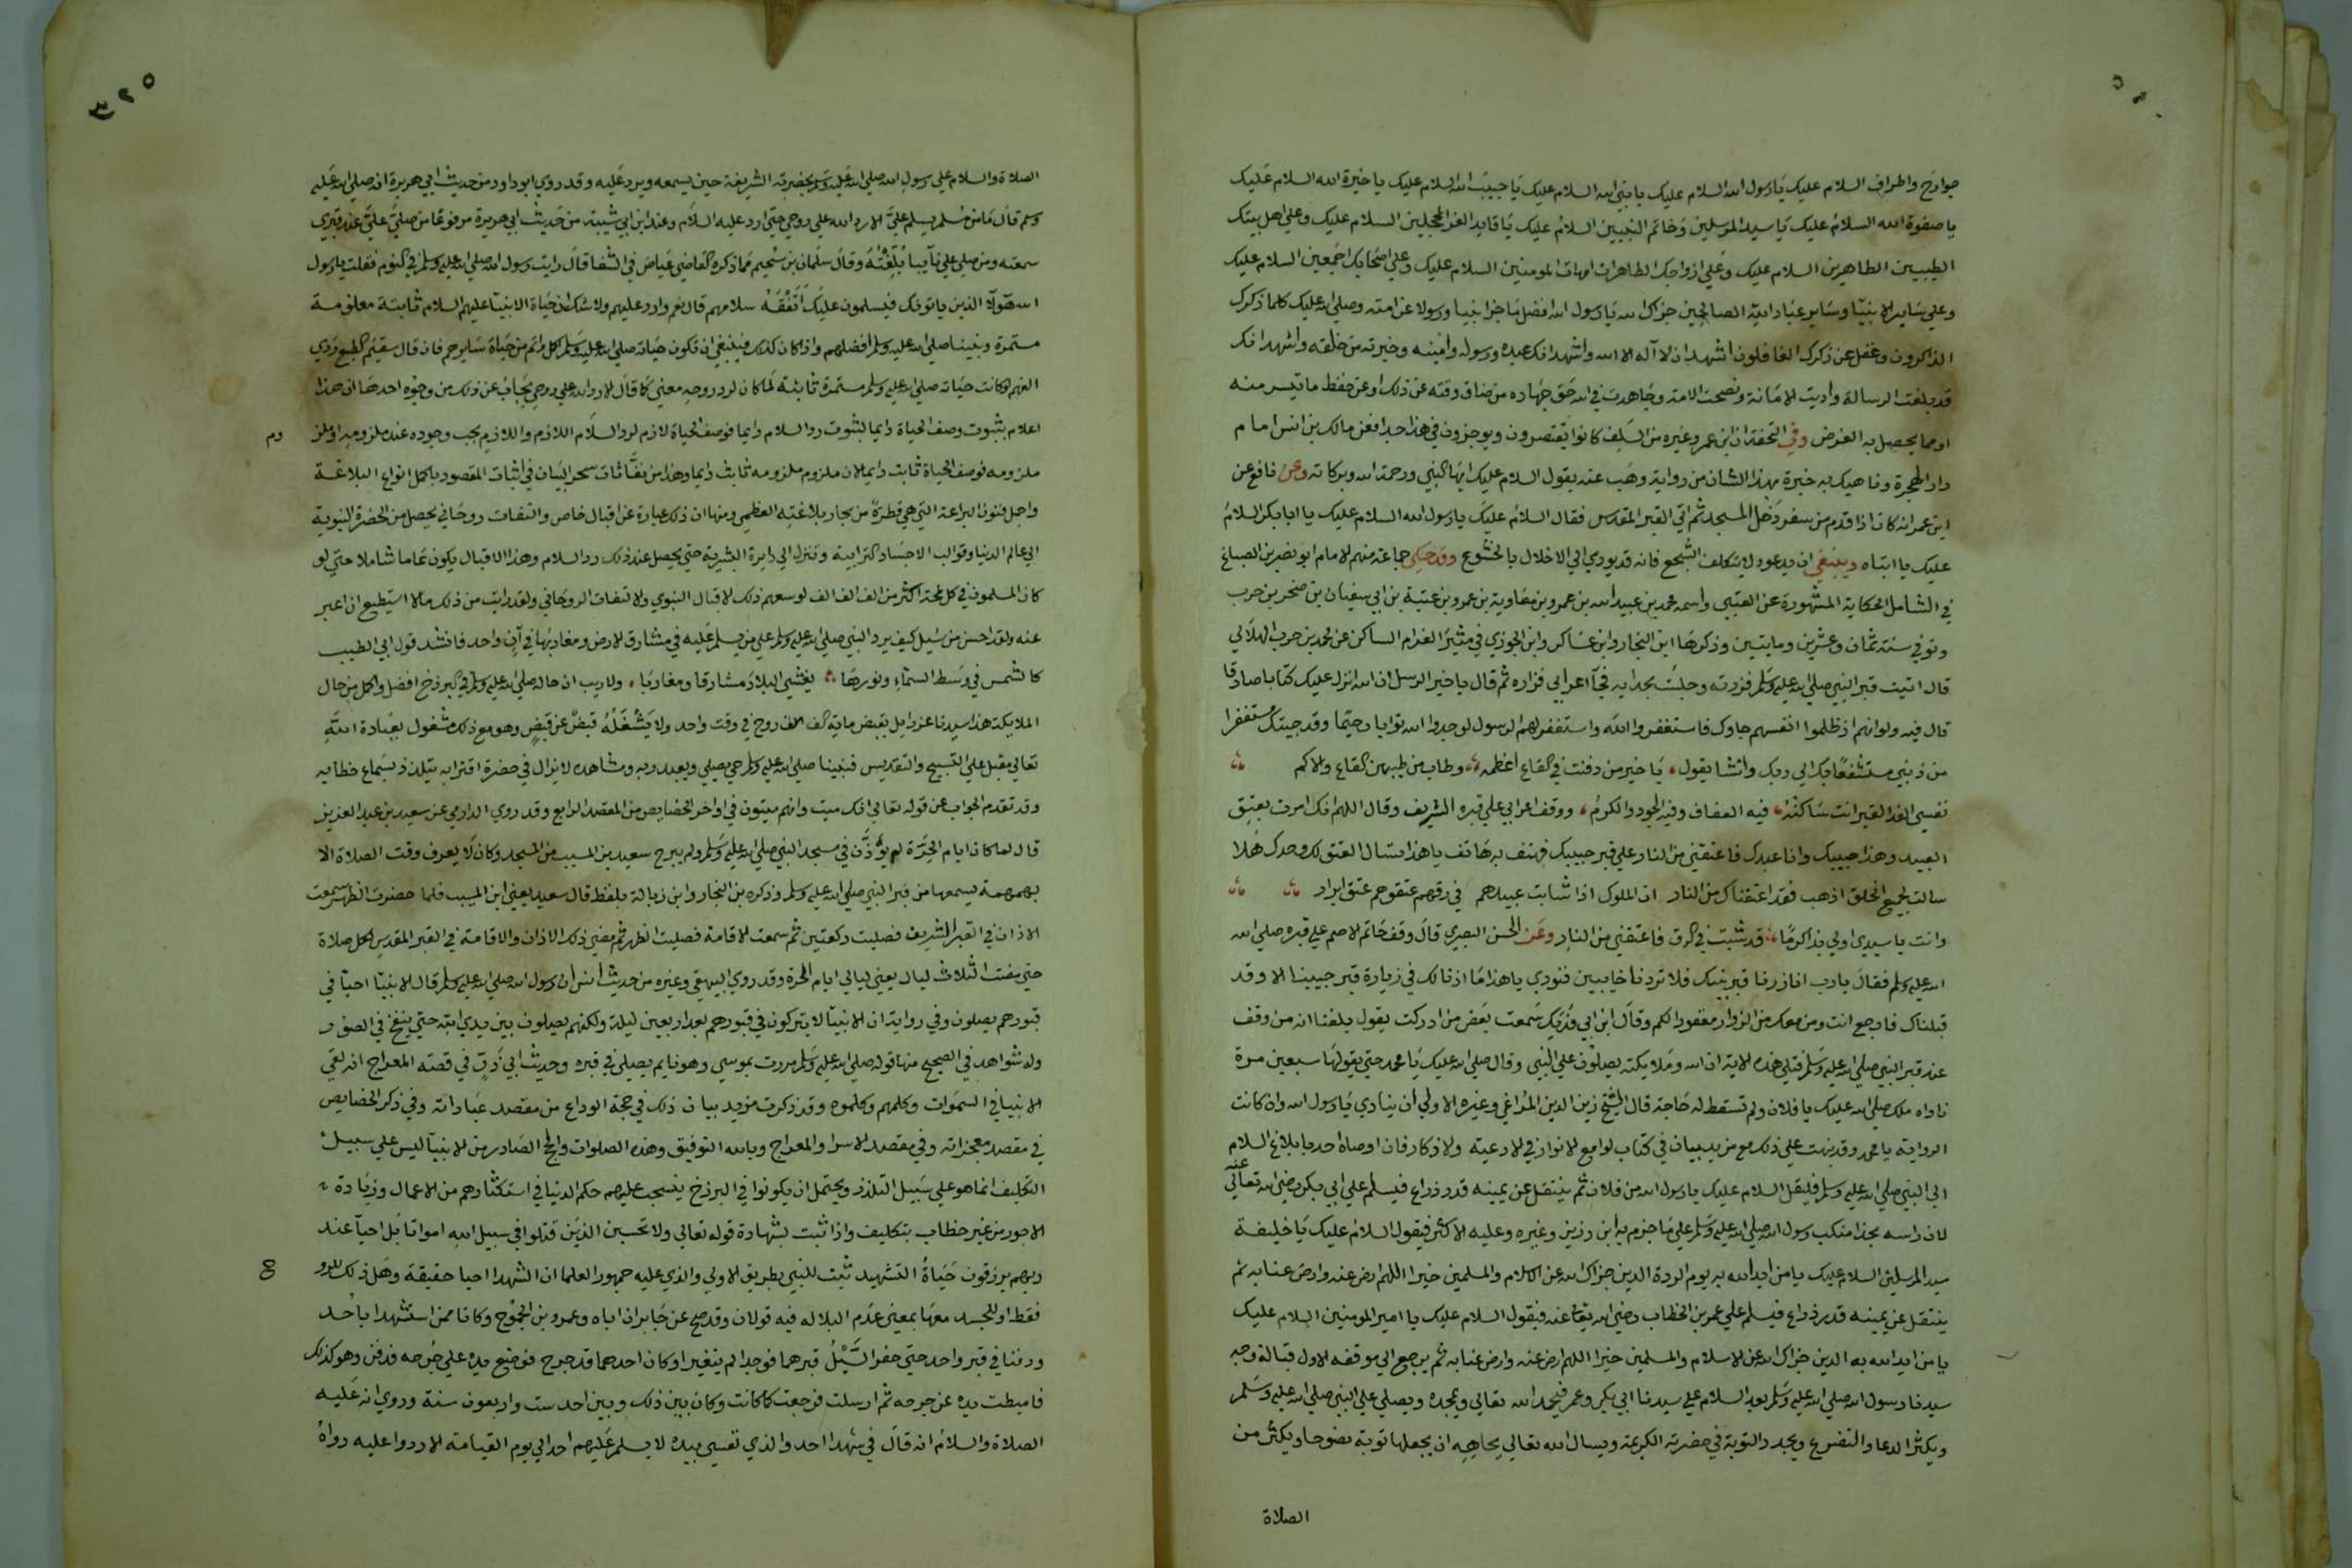 جوارح واطراف السلام عليك يا رسول الله السلام عليك يا نبي الله السلام عليك يا حبيب الله السلام عليك يا خيرة الله السلام عليك
يا صفوة الله السلام عليك يا سيد المرسلين وخاتم النبيين السلام عليك يا قايد الغر المحجلين السلام عليك وعلى اهل بيتك
الطيبين الطاهرين السلام عليك وعلى ازواجك الطاهرات امهات المومنين السلام عليك وعلى اصحابك اجمعين السلام عليك
وعلى ساير الانبيا وساير عباد الله الصالحين جزاك الله يا رسول الله افضل ما جزا نبيا ورسولا عن امته وصلى الله عليك كلما ذكرك
الذاكرون وغفل عن ذكرك الغافلون اشهد ان لا اله الا الله واشهد انك عبده ورسوله وامينه وخيرته من خلقه واشهد انك
قد بلغت الرسالة واديت الامانة ونصحت الامة وجاهدت في الله حق جهاده من ضاق وقته عن ذلك او عن حفظ ما تيسر منه
او مما يحصل به الغرض وفي التحفة ان ابن عمر وغيره من السلف كانوا يقتصرون ويوجزون في هذا جدا فعن مالك بن انس امام
دار الهجرة وناهيك به خبرة بهذا الشان من رواية وهب عنه يقول السلام عليك ايها النبي ورحمة الله وبركاته وعن نافع عن
ابن عمر انه كان اذا قدم من سفر دخل المسجد ثم اتي القبر المقدس فقال السلام عليك يا رسول الله السلام عليك يا ابا بكر السلام
عليك يا ابتاه وينبغي ان يدعو ولا يتكلف السجع فانه قد يودي الي الاخلال بالخشوع وقد حكي جماعة منهم الامام ابو نصر بن الصباغ
في الشامل الحكاية المشهورة عن العتبي واسمه محمد بن عبيد الله بن عمرو بن معاوية بن عمرو بن عتبة بن ابي سفيان بن صخر بن حرب
وتوفي سنة ثمان وعشرين ومايتين وذكرها ابن النجار وابن عساكر وابن الجوزي في مثير الغرام الساكن عن محمد بن حرب الهلالي
قال اتيت قبر النبي صلى الله عليه وسلم فزرته وجلست بحدايه فجا اعرابي فزاره ثم قال يا خير الرسل ان الله انزل عليك كتابا صادقا
قال فيه ولو انهم اذ ظلموا انفسهم جاوك فاستغفروا الله واستغفر لهم الرسول لوجدوا الله توابا رحيما وقد جيتك مستغفرا
من ذنبي مستشفعا بك الي ربك وانشا يقول يا خير من دفنت في القاع اعظمه وطاب من طيبهن القاع والاكم
نفسي الفدا لقبر انت ساكنه فيه العفاف وفيه الجود والكرم ووقف اعرابي علي قبره الشريف وقال اللهم انك امرت بعتق
العبيد وهذا حبيبك وانا عبدك فاعتقني من النار على قبر حبيبك فهتف به هاتف يا هذا تسال العتق لك وحدك هلا
سالت لجميع الخلق اذهب فقد اعتقناك من النار ان الملوك اذا شابت عبيدهم في رقهم عتقوهم عتق ابرار
وانت يا سيدي اولي بذا كرما قد شبت في الرق فاعتقني من النار وعن الحسن البصري قال وقف حاتم الاصم علي قبره صلى الله
الله عليه وسلم فقال يا رب انا زرنا قبر نبيك فلا تردنا خايبين فنودي يا هذا ما اذنا لك في زيارة قبر حبيبنا الا وقد
قبلناك فارجع انت ومن معك من الزوار مغفورا لكم وقال ابن ابي فديك سمعت بعض من ادركت يقول بلغنا انه من وقف
عند قبر النبي صلى الله عليه وسلم فتلي هذه الاية ان الله وملايكته يصلون علي النبي وقال صلى الله عليك يا محمد حتي يقولها سبعين مرة
ناداه ملك صلى الله عليك يا فلان ولم تسقط له حاجة قال الشيخ زين الدين المراغي وغيره الاولي ان ينادي يا رسول الله وان كانت
الرواية يا محمد وقد نبهت علي ذلك مع مزيد بيان في كتاب لوامع الانوار في الادعية والاذكار فان اوصاه احد بابلاغ السلام
الي النبي صلى الله عليه وسلم فليقل السلام عليك يا رسول الله من فلان ثم ينتقل عن يمينه قدر ذراع فيسلم علي ابي بكر رضي الله تعالي عنه
لان راسه بحذا منكب رسول الله صلى الله عليه وسلم علي ما جزم به ابن رزين وغيره وعليه الاكثر فيقول السلام عليك يا خليفة
سيد المرسلين السلام عليك يا من ايد الله به يوم الردة الدين جزاك الله عن الاسلام والمسلمين خيرا اللهم ارض عنه وارض عنا به ثم
ينتقل عن يمينه قدر ذراع فيسلم علي عمر بن الخطاب رضي الله تعالي عنه فيقول السلام عليك يا امير المومنين السلام عليك
يا من ايد الله به الدين جزاك الله عن الاسلام والمسلمين خيرا اللهم ارض عنه وارض عنا به ثم يرجع الي موقفه الاول قبالة وجه
سيدنا رسول الله صلى الله عليه وسلم بعد السلام علي سيدنا ابي بكر وعمر فيحمد الله تعالي ويمجده ويصلي علي النبي صلى الله عليه وسلم
ويكثر الدعا والتضرع ويجدد التوبة في حضرته الكريمة ويسال الله تعالي بجاهه ان يجعلها توبة نصوحا ويكثر من
الصلاة
الصلاة والسلام علي رسول الله صلى الله عليه وسلم بحضرته الشريفة حين يسمعه ويرد عليه وقد روي ابو داود من حديث ابي هريرة انه صلى الله عليه
وسلم قال ما من مسلم يسلم علي الا رد الله علي روحي حتي ارد عليه السلام وعند ابن ابي شيبة من حديث ابي هريرة مرفوعا من صلي علي عند قبري
سمعته ومن صلي علي نايبا بلغته وقال سليمان بن سحيم مما ذكره القاضي عياض في الشفا قال رايت رسول الله صلى الله عليه وسلم في النوم فقلت يا رسول
الله هولا الذين ياتونك فيسلمون عليك اتفقه سلامهم قال نعم وارد عليهم ولا شك ان حياة الانبيا عليهم السلام ثابتة معلومة
مستمرة ونبينا صلى الله عليه وسلم افضلهم واذا كان كذلك فينبغي ان تكون حياته صلى الله عليه وسلم اكمل واتم من حياة سايرهم فان قال سقيم الطبع ردي
الفهم لو كانت حياته صلى الله عليه وسلم مستمرة ثابتة لما كان لرد روحه معني كما قال الا رد الله علي روحي يجاب عن ذلك من وجوه احدها ان هذا
اعلام بثبوت وصف الحياة دايما لثبوت رد السلام دايما فوصف الحياة لازم لرد السلام اللازم واللازم يجب وجوده عند ملزومه او ملزوم
ملزومه فوصف الحياة ثابت دايما لان ملزوم ملزومه ثابت دايما وهذا من نفاثات سحر البيان في اثبات المقصود باكمل انواع البلاغة
واجل فنون البراعة التي هي قطرة من بحار بلاغته العظمي ومنها ان ذلك عبارة عن اقبال خاص والتفات روحاني يحصل من الحضرة النبوية
الي عالم الدنيا وقوالب الاجساد الترابية وتنزل الي دايرة البشرية حتي يحصل عند ذلك رد السلام وهذا الاقبال يكون عاما شاملا حتي لو
كان المسلمون في كل لمحة اكثر من الف الف الف لوسعهم ذلك الاقبال النبوي والالتفات الروحاني ولقد رايت من ذلك ما لا استطيع ان اعبر
عنه ولقد احسن من سيل كيف يرد النبي صلى الله عليه وسلم علي من يسلم عليه في مشارق الارض ومغاربها في آن واحد فانشد قول ابي الطيب
كالشمس في وسط السماء ونورها يغشي البلاد مشارقا ومغاربا ولا ريب ان حاله صلى الله عليه وسلم في البرزخ افضل واكمل من حال
الملايكة هذا سيدنا عزرايل يقبض ماية الف الف روح في وقت واحد ولا يشغله قبض عن قبض وهو مع ذلك مشغول بعبادة الله
تعالي مقبل علي التسبيح والتقديس فنبينا صلى الله عليه وسلم حي يصلي ويعبد ربه ويشاهده لا يزال في حضرة اقترابه يتلذذ بسماع خطابه
وقد تقدم الجواب عن قوله تعالي انك ميت وانهم ميتون في اواخر الخصايص من المقصد الرابع وقد روي الدارمي عن سعيد بن عبد العزيز
قال لما كان ايام الحرة لم يوذن في مسجد النبي صلى الله عليه وسلم ولم يبرح سعيد بن المسيب من المسجد وكان لا يعرف وقت الصلاة الا
بهمهمة يسمعها من قبر النبي صلى الله عليه وسلم وذكره بن النجار وابن زبالة بلفظ قال سعيد يعني ابن المسيب فلما حضرت الظهر سمعت
الاذان في القبر الشريف فصليت ركعتين ثم سمعت الاقامة فصليت الظهر ثم مضي ذلك الاذان والاقامة في القبر المقدس لكل صلاة
حتي مضت الثلاث ليال يعني ليالي ايام الحرة وقد روي البيهقي وغيره من حديث انس ان رسول الله صلى الله عليه وسلم قال الانبيا احيا في
قبورهم يصلون وفي رواية ان الانبيا لا يتركون في قبورهم بعد اربعين ليلة ولكنهم يصلون بين يدي الله حتي ينفخ في الصور
وله شواهد في الصحيح منها قوله صلى الله عليه وسلم مررت بموسي وهو قايم يصلي في قبره وحديث ابي ذر في قصة المعراج انه لقي
الانبيا في السموات وكلمهم وكلموه وقد ذكرت مزيد بيان ذلك في حجة الوداع من مقصد عباداته وفي ذكر الخصايص
في مقصد معجزاته وفي مقصد الاسرا والمعراج وبالله التوفيق وهذه الصلوات والحج الصادر من الانبيا ليس علي سبيل
التكليف انما هو علي سبيل التلذذ ويحتمل ان يكونوا في البرزخ ينسحب عليهم حكم الدنيا في استكثارهم من الاعمال وزيادة
الاجور من غير خطاب بتكليف واذا ثبت بشهادة قوله تعالي ولا تحسبن الذين قتلوا في سبيل الله امواتا بل احيا عند
ربهم يرزقون حياة الشهيد ثبت للنبي بطريق الاولي والذي عليه جمهور العلما ان الشهدا احيا حقيقة وهل ذلك للروح
فقط او للجسد معها بمعني عدم البلا له فيه قولان وقد صح عن جابر ان اباه وعمرو بن الجموح وكانا ممن استشهدا باحد
ودفنا في قبر واحد حتي حفر السيل قبرهما فوجدا لم يتغيرا وكان احدهما قد جرح فوضع يده علي جرحه فدفن وهو كذلك
فاميطت يده عن جرحه ثم ارسلت فرجعت كما كانت وكان بين ذلك وبين احد ست واربعون سنة وروي انه عليه
الصلاة والسلام انه قال في شهدا احد والذي نفسي بيده لا يسلم عليهم احد الي يوم القيامة الا ردوا عليه رواه